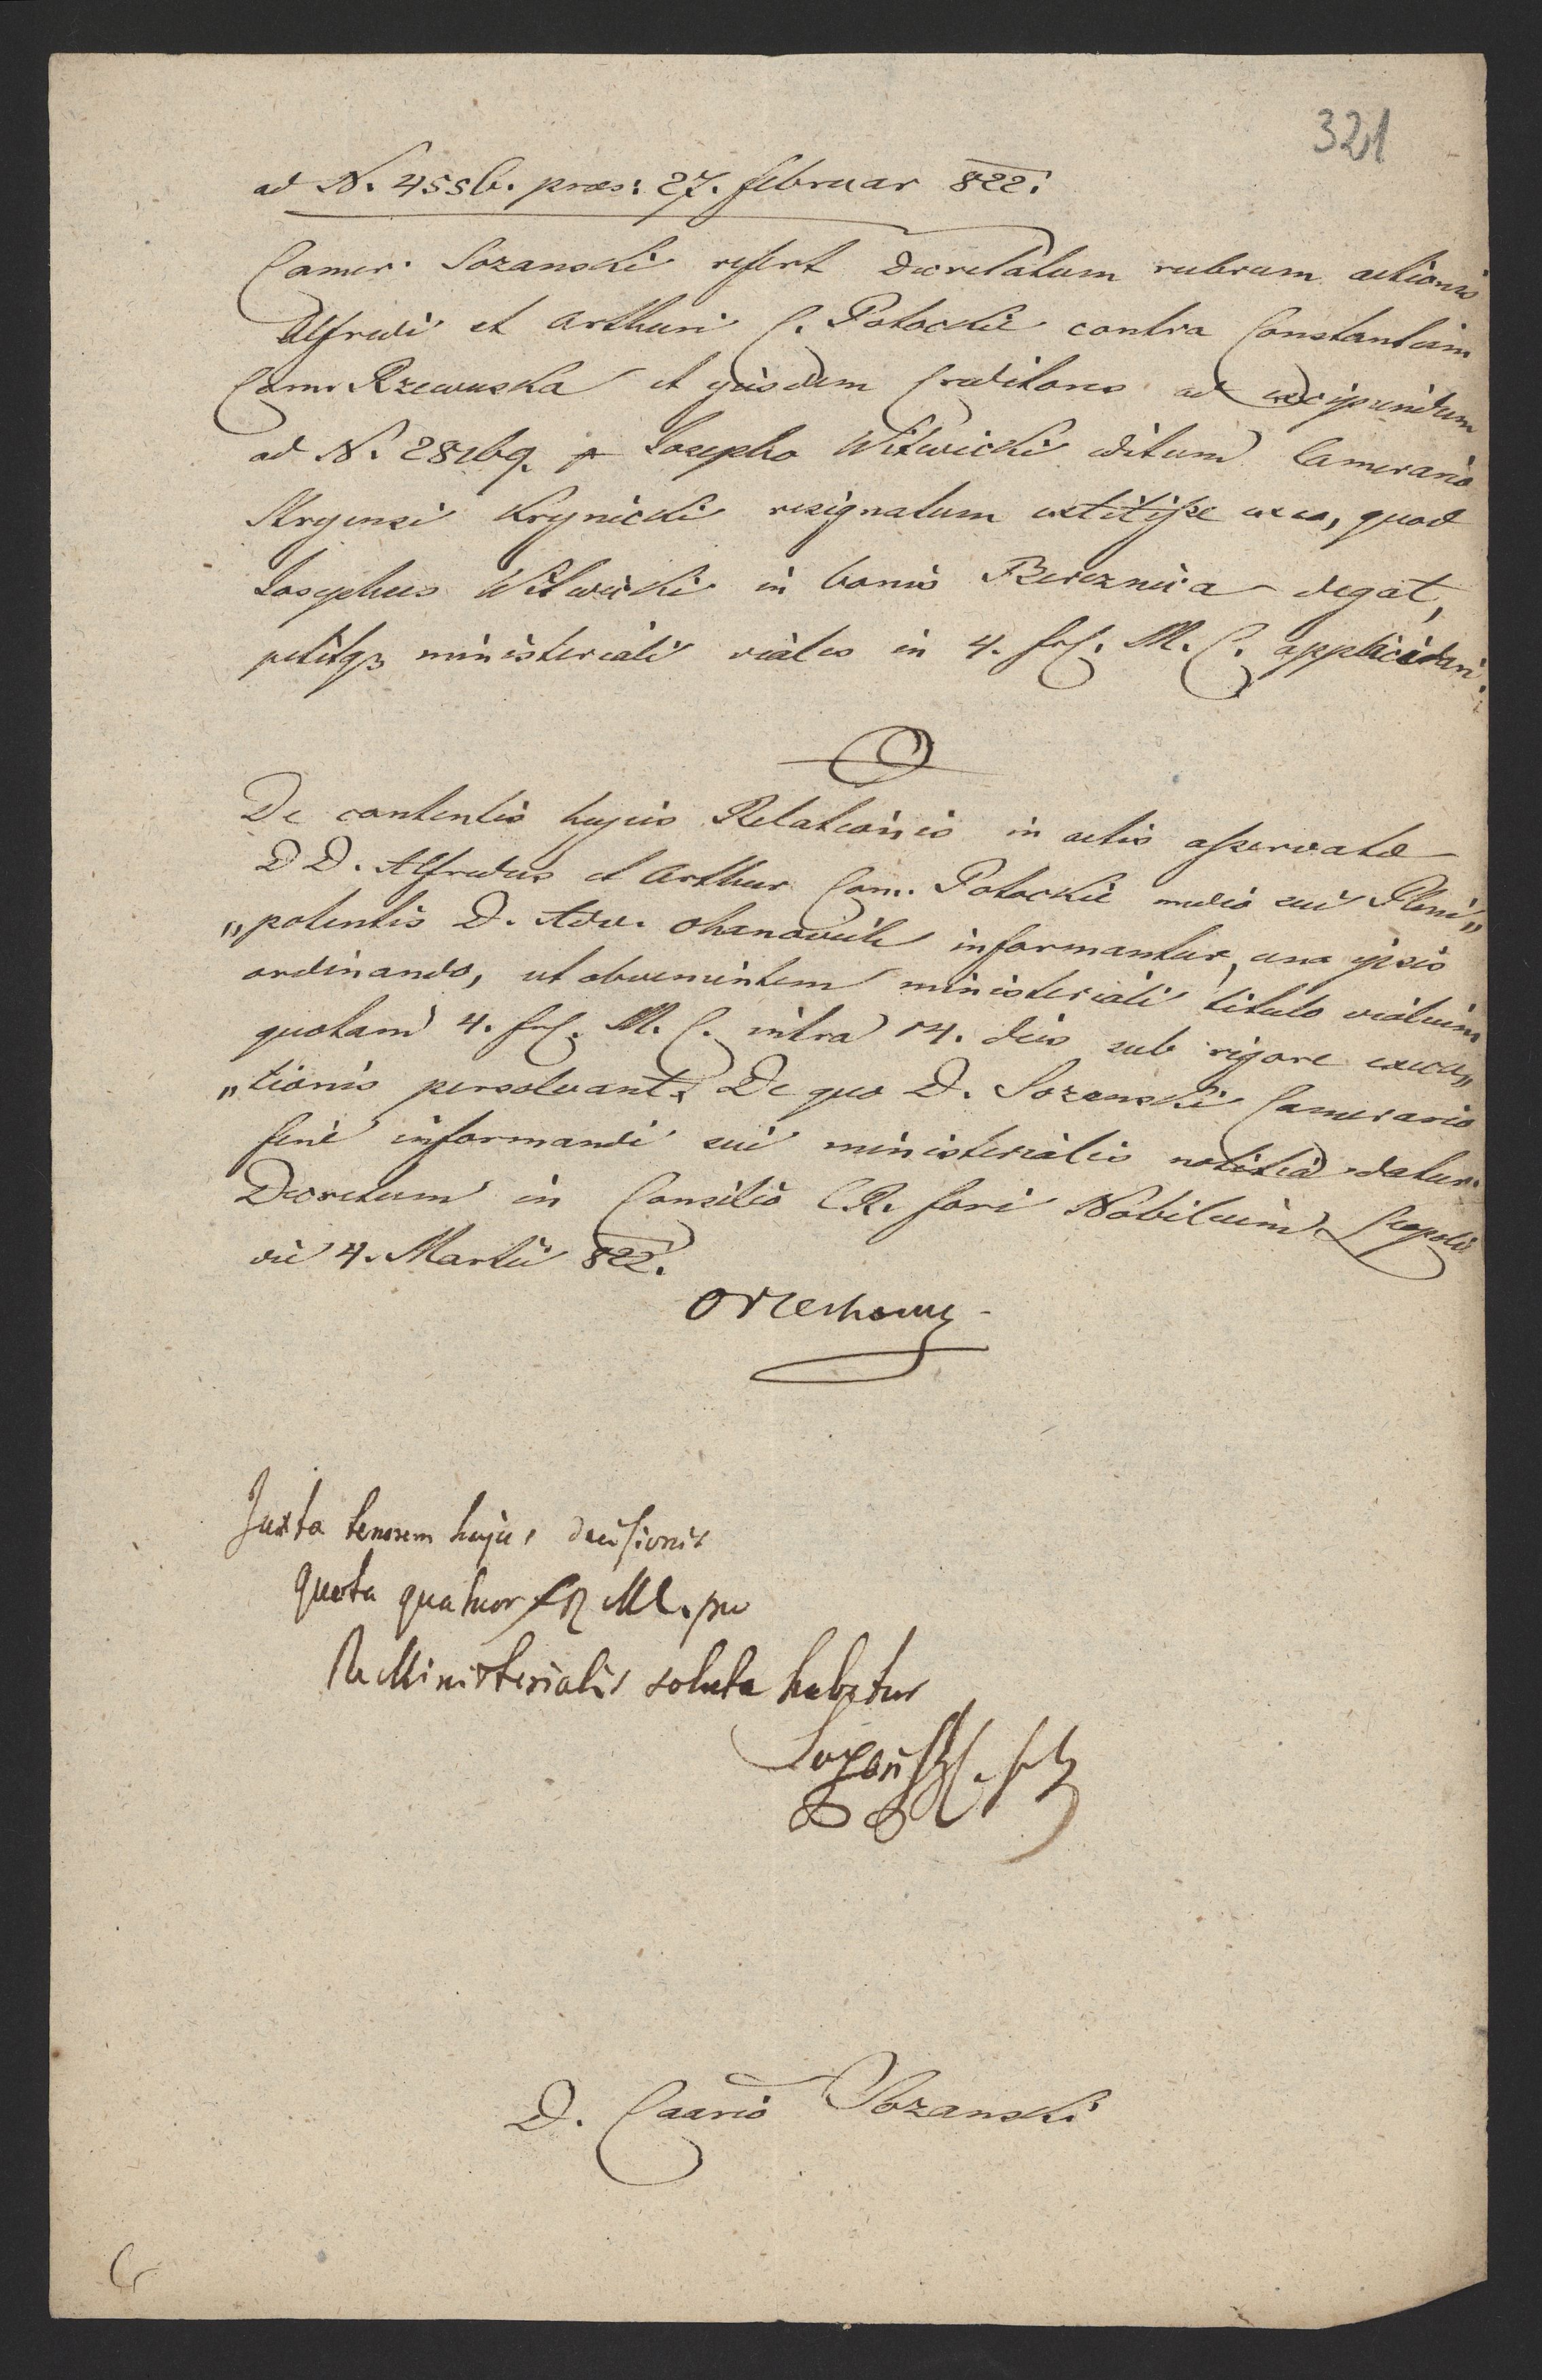 321
ad N. 4556. præs: 27. februar 822.
Camer. Sozanski refert decretatum rubrum actionis
Alfredi et Arthuri C. Potockie contra Constantiam
Com. Rzewuska et ejusdem Creditores ad excipiendum
ad N. 28169. pr Josepho Witwicki editum Camerario
Stryensi Krynicki resignatum extitisse ex eo, quod
Josephus Witwicki in bonis Bereznica degat,
petitqз ministeriali viales in 4. fr. M. C. applacidari.
De contentis hujus Relationis in actis asservatæ
DD. Alfredus et Arthur Com. Potockie medio sui Pleni„
„potentis D. Adv. Ohanowicz informantur, una ipsis
ordinando, ut obvenientem ministeriali titulo vialium
quotam 4. fr. M. C. intra 14. dies sub rigore execu„
„tionis persolvant. De quo D. Sozanski Camerario
fine informandi sui ministerialis notitia datur.
Decretum in Consilio C.R. fori Nobilium Leopoli
die 4. Martii 822.
Orzechowski
Juxta tenorem hujus decisionis
quota quatuor fr MC. per
Ministerialis soluta habetur
Sozański
D. Caario Sozanski